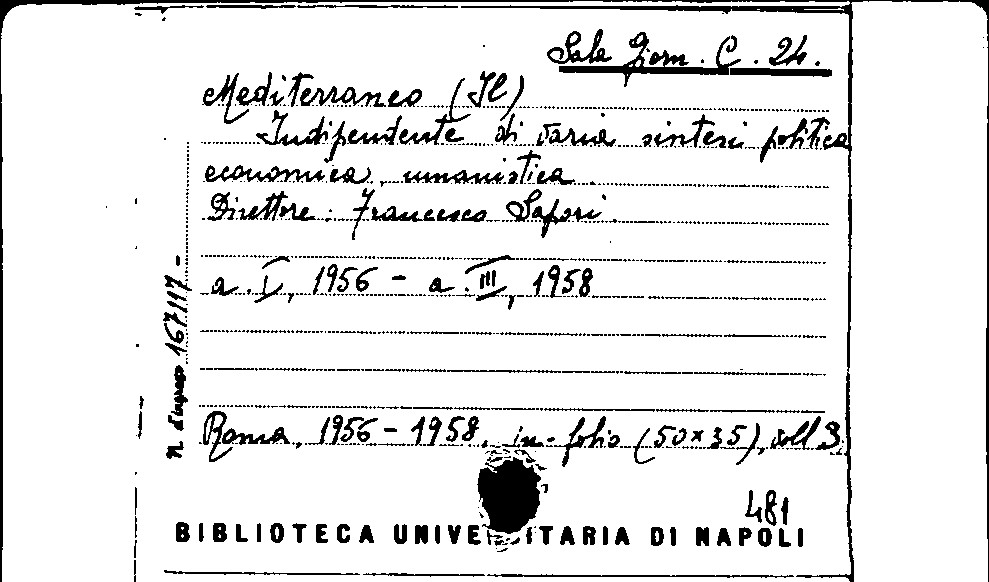 Sala Giorn. C. 24.
Mediterraneo (Il)
Indipendente di varia sintesi politica
economica, umanistica.
Direttore: Francesco Sapori.
a. I, 1956 - a. III, 1958
n. d'ingresso 167117 -
Roma, 1956 - 1958, in-folio (50x35), voll 3.
481
BIBLIOTECA UNIVE ITARIA DI NAPOLI